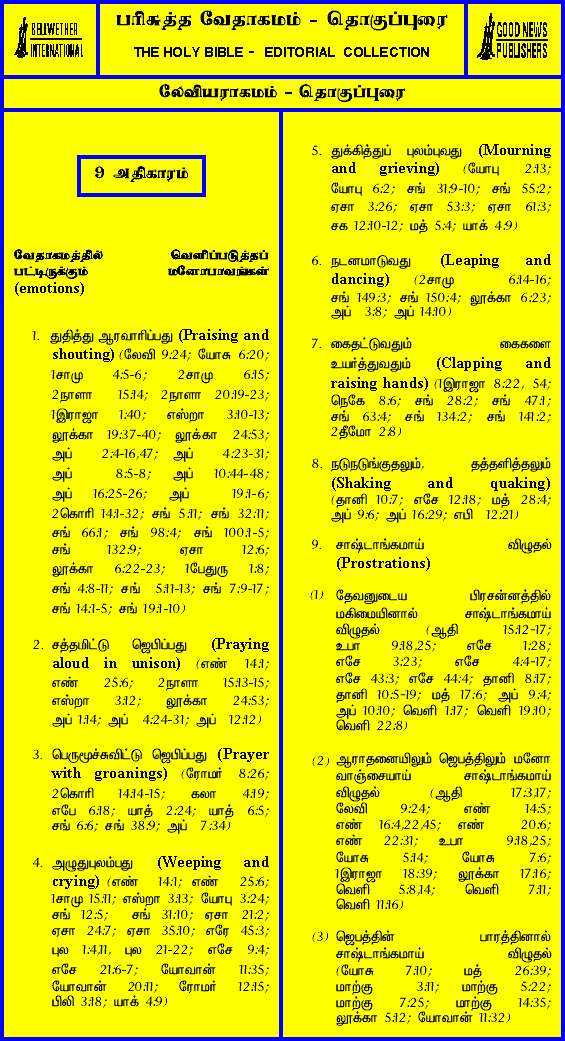 BELLWETHER
INTERNATIONAL
பரிசுத்த வேதாகமம் - தொகுப்புரை
THE HOLY BIBLE - EDITORIAL COLLECTION
GOOD NEWS
PUBLISHERS
லேவியராகமம் - தொகுப்புரை
9 அதிகாரம்
வேதாகமத்தில் வெளிப்படுத்தப்
பட்டிருக்கும் மனோபாவங்கள்
(emotions)
1. துதித்து ஆரவாரிப்பது (Praising and
shouting) (லேவி 9:24; யோசு 6:20;
1சாமு 4:5-6; 2சாமு 6:15;
2நாளா 15:14; 2நாளா 20:19-23;
1இராஜா 1:40; எஸ்றா 3:10-13;
லூக்கா 19:37-40; லூக்கா 24:53;
அப் 2:4-16,47; அப் 4:23-31;
அப் 8:5-8; அப் 10:44-48;
அப் 16:25-26; அப் 19:1-6;
2கொரி 14:1-32; சங் 5:11; சங் 32:11;
சங் 66:1; சங் 98:4; சங் 100:1-5;
சங் 132:9; ஏசா 12:6;
லூக்கா 6:22-23; 1பேதுரு 1:8;
சங் 4:8-11; சங் 5:11-13; சங் 7:9-17;
சங் 14:1-5; சங் 19:1-10)
2. சத்தமிட்டு ஜெபிப்பது (Praying
aloud in unison) (எண் 14:1;
எண் 25:6; 2நாளா 15:13-15;
எஸ்றா 3:12; லூக்கா 24:53;
அப் 1:14; அப் 4:24-31; அப் 12:12)
3. பெருமூச்சுவிட்டு ஜெபிப்பது (Prayer
with groanings) (ரோமர் 8:26;
2கொரி 14:14-15; கலா 4:19;
எபே 6:18; யாத் 2:24; யாத் 6:5;
சங் 6:6; சங் 38:9; அப் 7:34)
4. அழுதுபுலம்பது (Weeping and
crying) (எண் 14:1; எண் 25:6;
1சாமு 15:11; எஸ்றா 3:13; யோபு 3:24;
சங் 12:5; சங் 31:10; ஏசா 21:2;
ஏசா 24:7; ஏசா 35:10; எரே 45:3;
புல 1:4,11, புல 21-22; எசே 9:4;
எசே 21:6-7; யோவான் 11:35;
யோவான் 20:11; ரோமர் 12:15;
பிலி 3:18; யாக் 4:9)
5. துக்கித்துப் புலம்புவது (Mourning
and grieving) (யோபு 2:13;
யோபு 6:2; சங் 31:9-10; சங் 55:2;
ஏசா 3:26; ஏசா 53:3; ஏசா 61:3;
சக 12:10-12; மத் 5:4; யாக் 4:9)
6. நடனமாடுவது (Leaping and
dancing) (2சாமு 6:14-16;
சங் 149:3; சங் 150:4; லூக்கா 6:23;
அப் 3:8; அப் 14:10)
7. கைதட்டுவதும் கைகளை
உயர்த்துவதும் (Clapping and
raising hands) (1இராஜா 8:22, 54;
நெகே 8:6; சங் 28:2; சங் 47:1;
சங் 63:4; சங் 134:2; சங் 141:2;
2தீமோ 2:8)
8. நடுநடுங்குதலும், தத்தளித்தலும்
(Shaking and quaking)
(தானி 10:7; எசே 12:18; மத் 28:4;
அப் 9:6; அப் 16:29; எபி 12:21)
9. சாஷ்டாங்கமாய் விழுதல்
(Prostrations)
(1) தேவனுடைய பிரசன்னத்தில்
மகிமையினால் சாஷ்டாங்கமாய்
விழுதல் (ஆதி 15:12-17;
உபா 9:18,25; எசே 1:28;
எசே 3:23; எசே 4:4-17;
எசே 43:3; எசே 44:4; தானி 8:17;
தானி 10:5-19; மத் 17:6; அப் 9:4;
அப் 10:10; வெளி 1:17; வெளி 19:10;
வெளி 22:8)
(2) ஆராதனையிலும் ஜெபத்திலும் மனோ
வாஞ்சையாய் சாஷ்டாங்கமாய்
விழுதல் (ஆதி 17:3,17;
லேவி 9:24; எண் 14:5;
எண் 16:4,22,45; எண் 20:6;
எண் 22:31; உபா 9:18,25;
யோசு 5:14; யோசு 7:6;
1இராஜா 18:39; லூக்கா 17:16;
வெளி 5:8,14; வெளி 7:11;
வெளி 11:16)
(3) ஜெபத்தின் பாரத்தினால்
சாஷ்டாங்கமாய் விழுதல்
(யோசு 7:10; மத் 26:39;
மாற்கு 3:11; மாற்கு 5:22;
மாற்கு 7:25; மாற்கு 14:35;
லூக்கா 5:12; யோவான் 11:32)